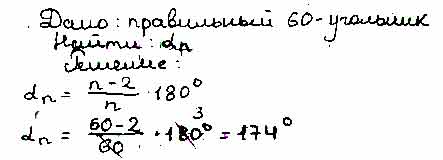 Дано: правильный 60-угольник
Найти: αn
Решение:
αn = n-2/n · 180°
αn = 60-2/60 · 180° 3 = 174°